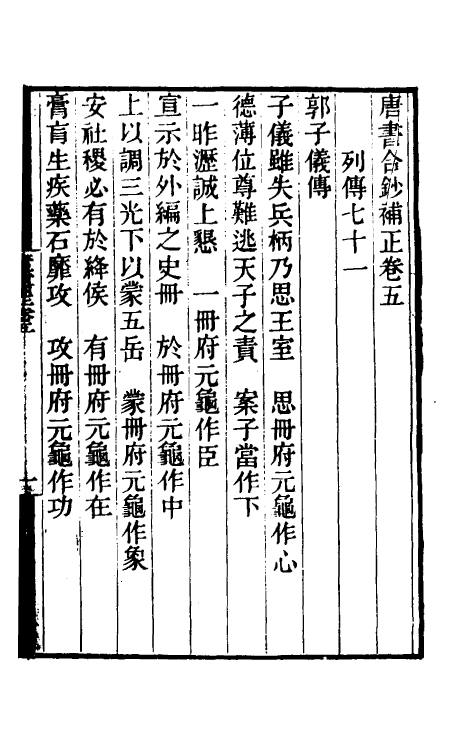 唐書合鈔補正卷五
列傳七十一
郭子儀傳
子儀雖失兵柄乃思王室　思冊府元龜作心
德薄位尊難逃天子之責　案子當作下
一昨瀝誠上懇　一冊府元龜作臣
宣示於外編之史冊　於冊府元龜作中
上以調三光下以蒙五岳　蒙冊府元龜作象
安社稷必有於絳侯　有冊府元龜作在
膏肓生疾藥石靡攻　攻冊府元龜作功